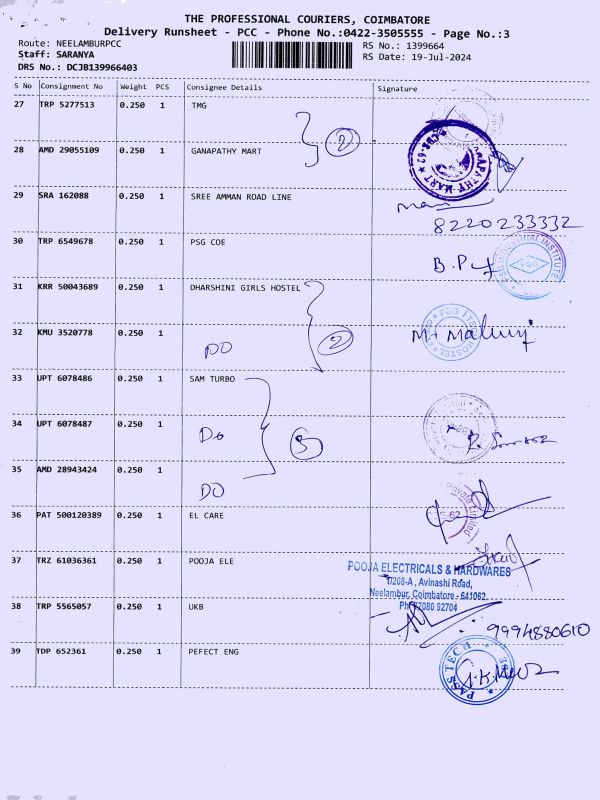 THE PROFESSIONAL COURIERS, COIMBATORE
Delivery Runsheet - PCC - Phone No.:0422-3505555 - Page No.:3
Route: NEELAMBURPCC
RS No.: 1399664
Staff: SARANYA
RS Date: 19-Jul-2024
DRS No.: DCJB139966403
S No Consignment No Weight PCS Consignee Details Signature
27 TRP 5277513 0.250 1 TMG
2
28 AMD 29055109 0.250 1 GANAPATHY MART
29 SRA 162088 0.250 1 SREE AMMAN ROAD LINE
8220233332
30 TRP 6549678 0.250 1 PSG COE
B.P
PSG INDUSTRIAL INSTITUTE
PSG
31 KRR 50043689 0.250 1 DHARSHINI GIRLS HOSTEL
32 KMU 3520778 0.250 1
DO 2
33 UPT 6078486 0.250 1 SAM TURBO
34 UPT 6078487 0.250 1
Do 3
35 AMD 28943424 0.250 1
DO
Private Limited
36 PAT 500120389 0.250 1 EL CARE
37 TRZ 61036361 0.250 1 POOJA ELE
POOJA ELECTRICALS & HARDWARES
Avinashi Road,
Neelambur, Coimbatore - 641062.
38 TRP 5565057 0.250 1 UKB
9994880610
39 TDP 652361 0.250 1 PEFECT ENG